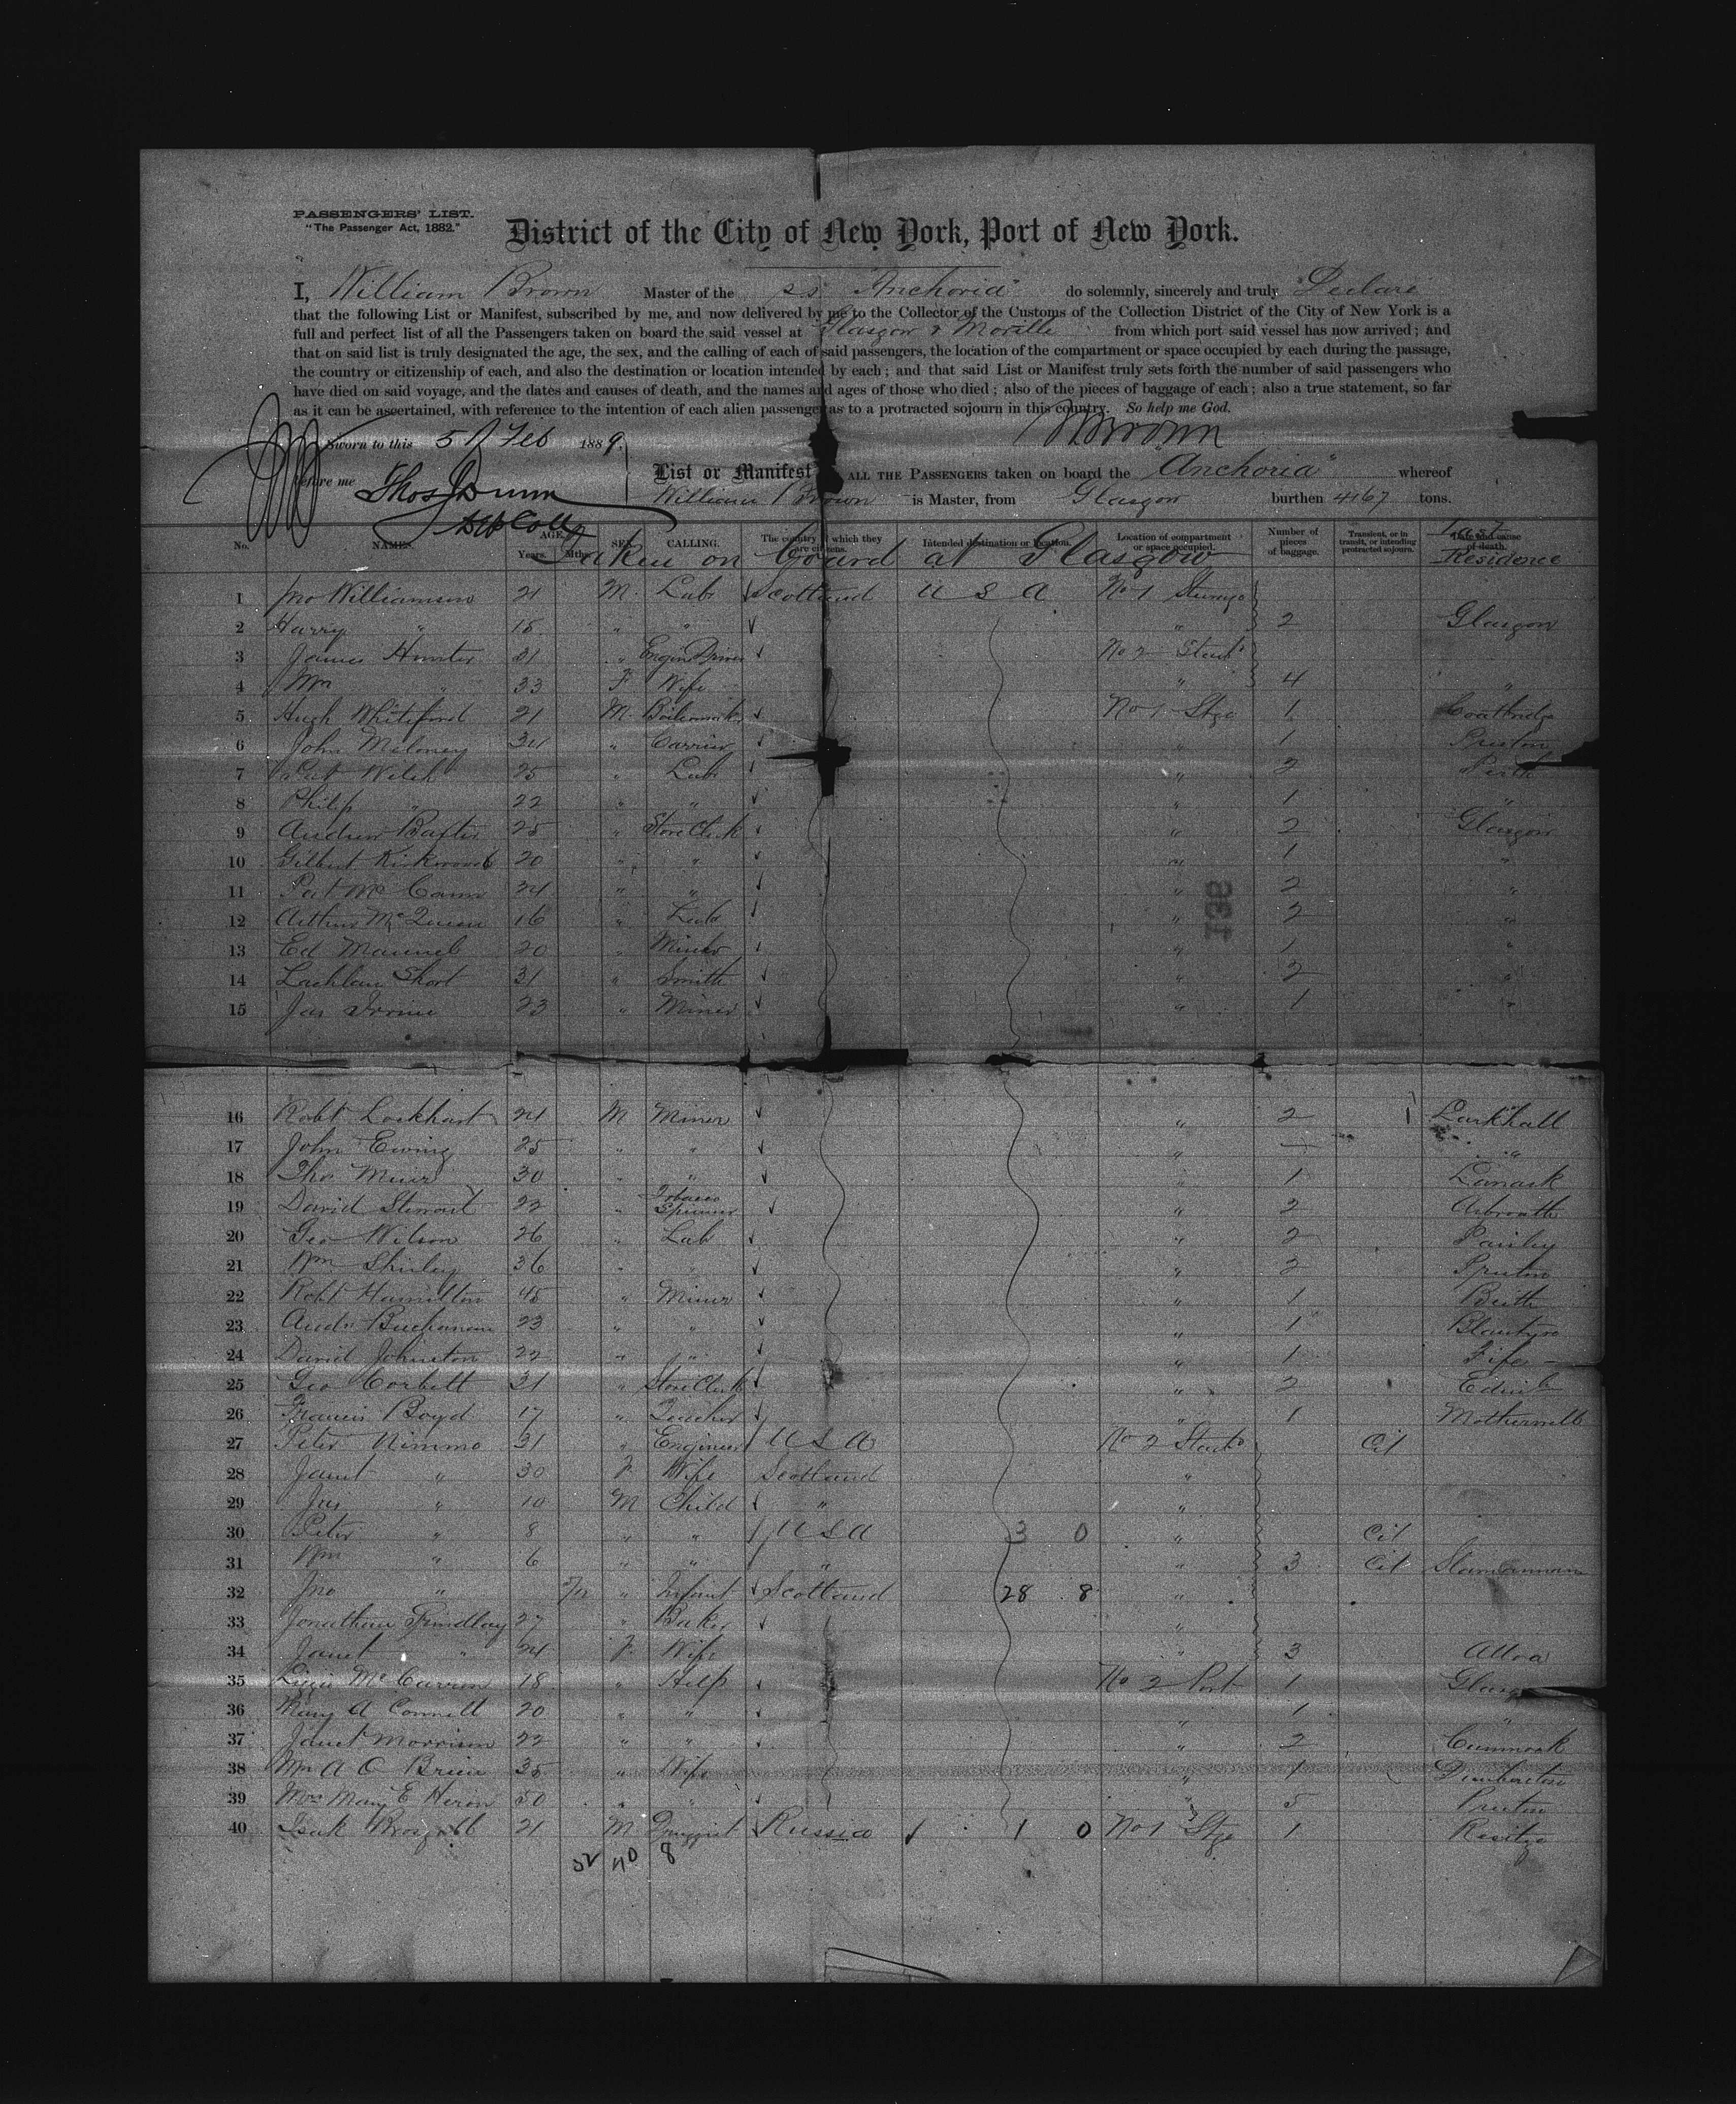 PASSENGERS' LIST.
"The Passenger Act, 1882."
District of the City of New York, Port of New York.
I, William Brown Master of the s.s. "Anchoria" do solemnly, sincerely and truly Declare
that the following List or Manifest, subscribed by me, and now delivered by me to the Collector of the Customs of the Collection District of the City of New York is a
full and perfect list of all the Passengers taken on board the said vessel at Glasgow & Moville from which port said vessel has now arrived; and
that on said list is truly designated the age, the sex, and the calling of each of said passengers, the location of the compartment or space occupied by each during the passage,
the country or citizenship of each, and also the destination or location intended by each; and that said List or Manifest truly sets forth the number of said passengers who
have died on said voyage, and the dates and causes of death, and the names and ages of those who died; also of the pieces of baggage of each; also a true statement, so far
as it can be ascertained, with reference to the intention of each alien passenger as to a protracted sojourn in this country. So help me God.
WBrown
Sworn to this 5 Feb 1889.
before me Thos J Dunn
Dep Coll
List or Manifest ALL THE PASSENGERS taken on board the "Anchoria" whereof
William Brown is Master, from Glasgow burthen 4167 tons.
No. NAMES. AGE. Years. Mths. SEX. CALLING. The country of which they are citizens. Intended destination or location. Location of compartment or space occupied. Number of pieces of baggage. Transient, or in transit, or intending protracted sojourn. Date and cause of death. Last Residence
Taken on board at Glasgow
1 Jno Williamson 21 M Lab Scotland U S A No 1 Steerage
2 Harry " 15 " " " 2 Glasgow
3 James Hunter 31 " Engin Driver No 2
4 " 33 F Wife " 4 "
5 Hugh Whiteford 21 M Boilermaker No 1 Stge 1 Coatbridge
6 John Meloney 34 " Carrier " 1 Preston
7 Pat Welsh 25 " Lab " 2 Perth
8 Philip " 22 " " " 1 "
9 Andrew Baxter 25 " Store Clerk " 2 Glasgow
10 Gilbert Kirkwood 20 " " " 1 "
11 Pat McCann 24 " " " 2 "
12 Arthur McQueen 16 " Lab " 2 "
13 Ed 20 " Miner " 1 "
14 Lachlan Short 31 " Smith " 2 "
15 Jas Irvine 23 " Miner " 1 "
T38
16 Robt Lockhart 24 M Miner " 2 Larkhall
17 John Ewing 25 " " " — "
18 Tho Muir 30 " " " 1 Lanark
19 David Stewart 22 " Tobacco Spinner " 2 Arbroath
20 Geo Wilson 26 " Lab " 2 Paisley
21 Wm Shirley 36 " " " 2 Preston
22 Robt Hamilton 45 " Miner " 1 Beith
23 Andw Buchanan 23 " " " 1 Blantyre
24 David Johnston 22 " " " 1 Fife
25 Geo Corbett 31 " Store Clerk " 2 Edinb
26 Francis Boyd 17 " Teacher " 1 Motherwell
27 Peter Nimmo 31 " Engineer U S A No 2 Cit
28 Janet " 30 F Wife Scotland "
29 Jas " 10 M Child " "
30 Peter " 8 " " U S A 3 0 " Cit
31 Wm " 6 " " " " 3 Cit Slamannan
32 Jno " " Infant Scotland 28 8 "
33 Jonathan Grindlay 27 " Baker "
34 Janet " 24 F Wife " 3 Alloa
35 Lizzie 18 " Help No 2 Port 1 Glasgow
36 Mary A Connell 20 " " " 1 "
37 Janet Morrison 22 " " " 2 Cumnock
38 A O Brien 35 " Wife " 1 Dumbarton
39 Mrs Mary E Heron 50 " " " 5 Preston
40 Isak 21 M Druggist Russia 1 0 No 1 Stge 1